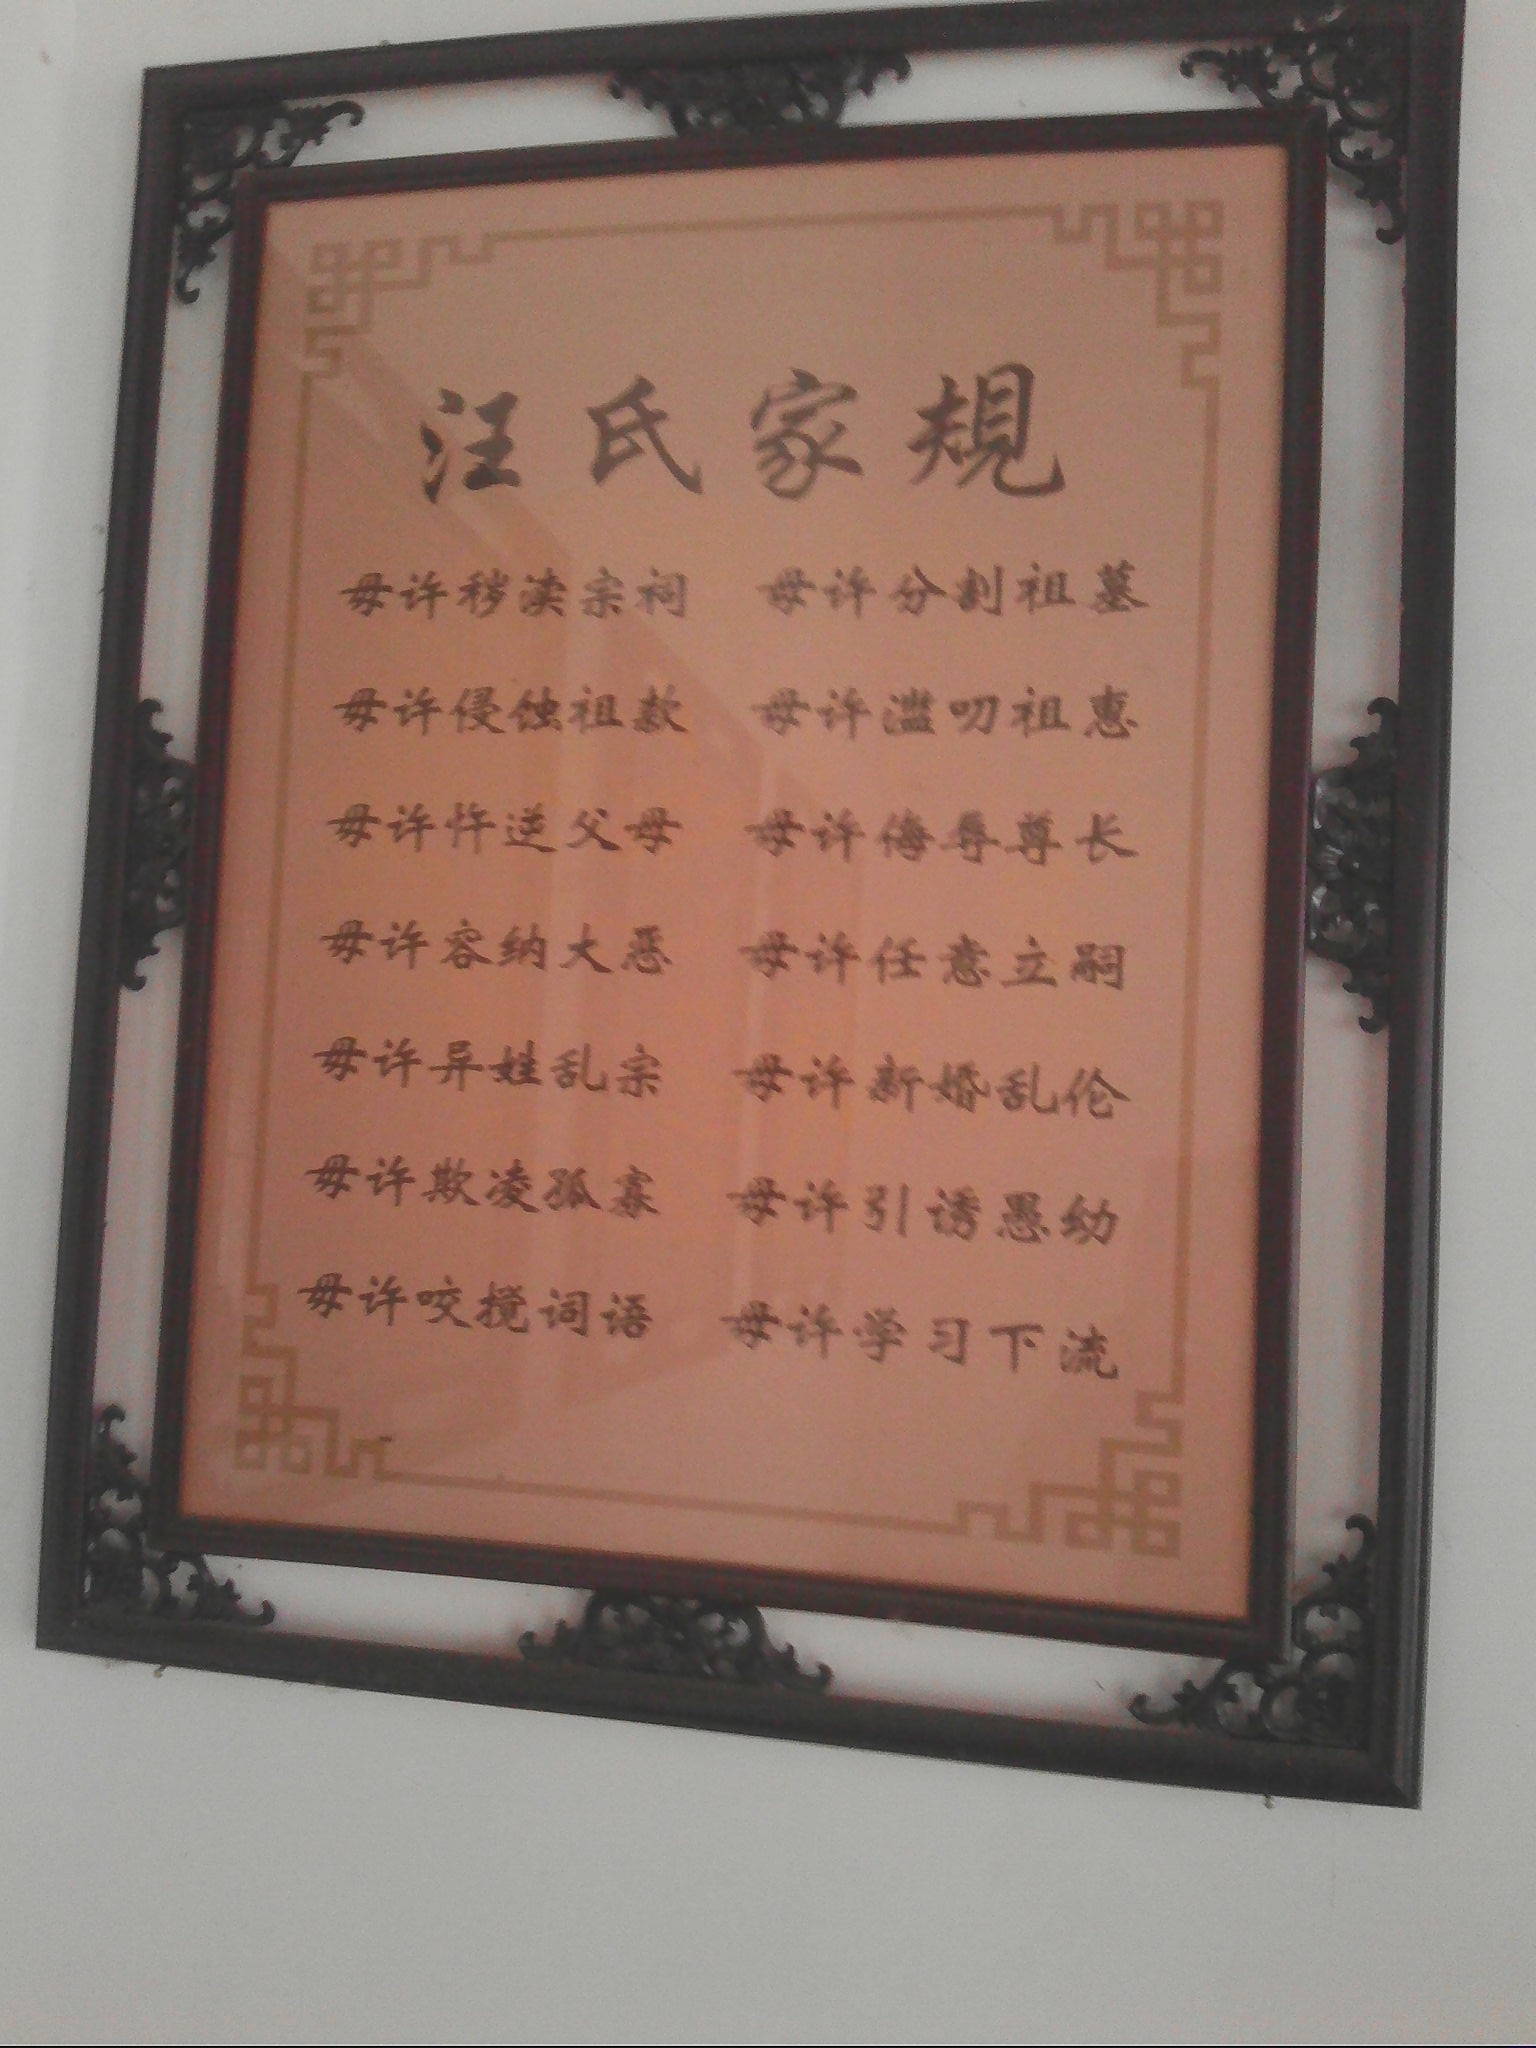 汪氏家规
毋许秽渎宗祠 毋许分割祖墓
毋许侵蚀祖款 毋许滥叨祖惠
毋许忤逆父母 毋许侮辱尊长
毋许容纳大恶 毋许任意立嗣
毋许异姓乱宗 毋许新婚乱伦
毋许欺凌孤寡 毋许引诱愚幼
毋许咬搅词语 毋许学习下流